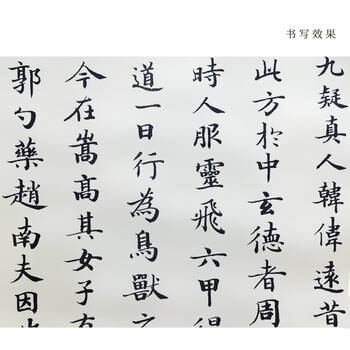 书写效果
九疑真人韓偉遠昔
此方於中玄德者周
時人服靈飛六甲得
道一日行為鳥獸之
今在嵩高其女子有
郭勺藥趙南夫因